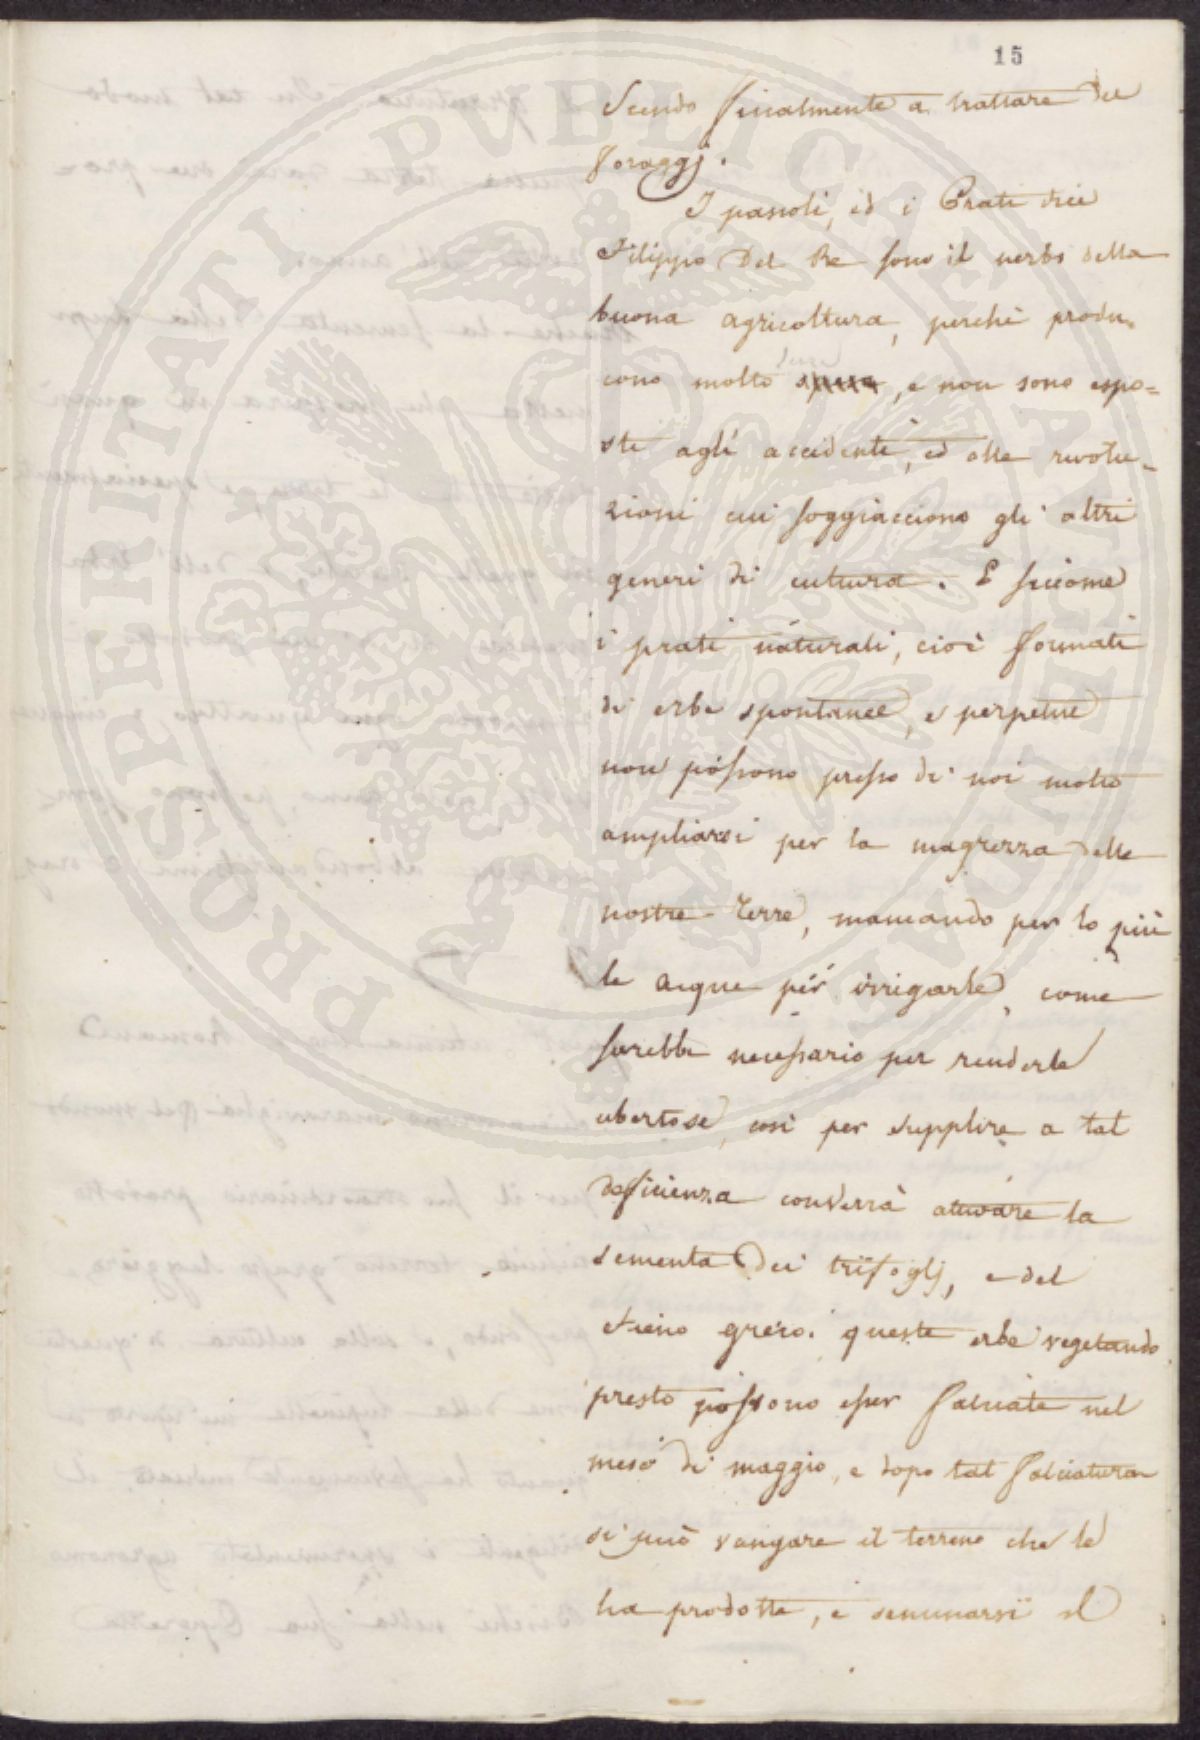 15
Scendo finalmente a trattare dei
foraggj.
I pascoli, ed i Prati dice
Filippo Del Re sono il nerbo della
buona agricoltura, perchè produ-
cono molto senza spesa, e non sono espo=
ste agli accidenti, ed alle rivolu-
zioni cui soggiacciono gli altri
generi di cultura. E siccome
i prati naturali, cioè formati
di erbe spontanee, e perpetue
non possono presso di noi molto
ampliarsi per la magrezza delle
nostre terre, mancando per lo più
le acque per irrigarle, come
sarebbe necessario per renderle
ubertose, così per supplire a tal
deficienza converrà attivare la
sementa dei trifoglj, e del
Fieno greco. queste erbe vegetando
presto possono esser falciate nel
mese di maggio, e dopo tal falciatura
si può vangare il terreno che le
ha prodotte, e seminarsi il
PROSPERITATI PUBLICAE AUGENDAE